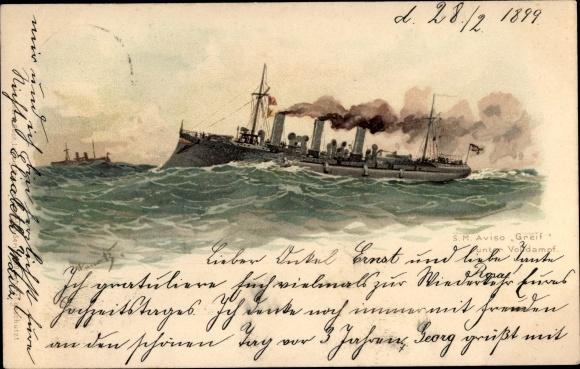 d. 28./2. 1899
S. M. Aviso „Greif“
unter Volldampf.
Lieber Onkel Ernst und liebe Tante
Rosa!
Ich gratuliere Euch vielmals zur Wiederkehr Eures
Hochzeitstages. Ich denke noch immer mit Freuden
an den schönen Tag vor 3 Jahren. Georg grüßt mit
mir und ist
Eure
Nichte Elisabeth